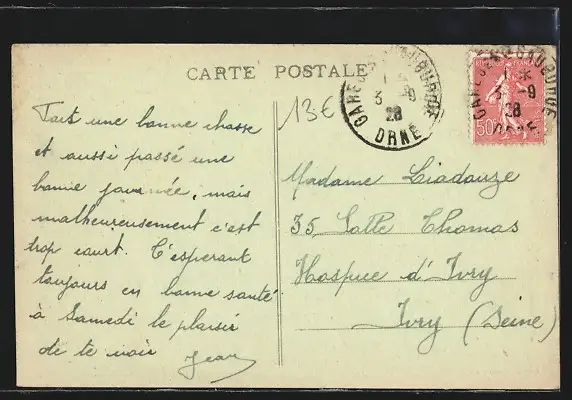 CARTE POSTALE
Fait une bonne chasse
et aussi passé une
bonne journée, mais
malheureusement c'est
trop court. T'esperant
toujours en bonne santé
à Samedi le plaisir
de te voir Jean
13€
GARE
3 -9
28
ORNE
REPUBLIQUE FRANÇAISE
50
3 -9
28
Madame Liadouze
35 Salle Thomas
Hospice d'Ivry
Ivry (Seine)